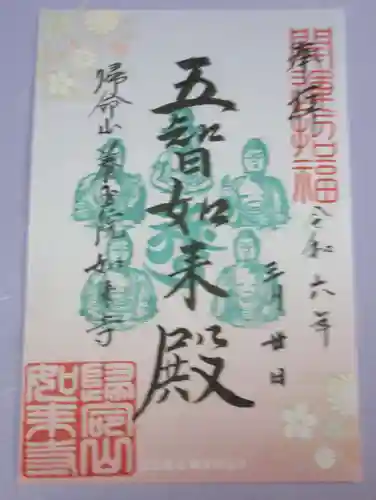 開運招福
奉拝
令和六年
三月廿日
五智如来殿
帰命山養玉院如来寺
帰命山
如来寺